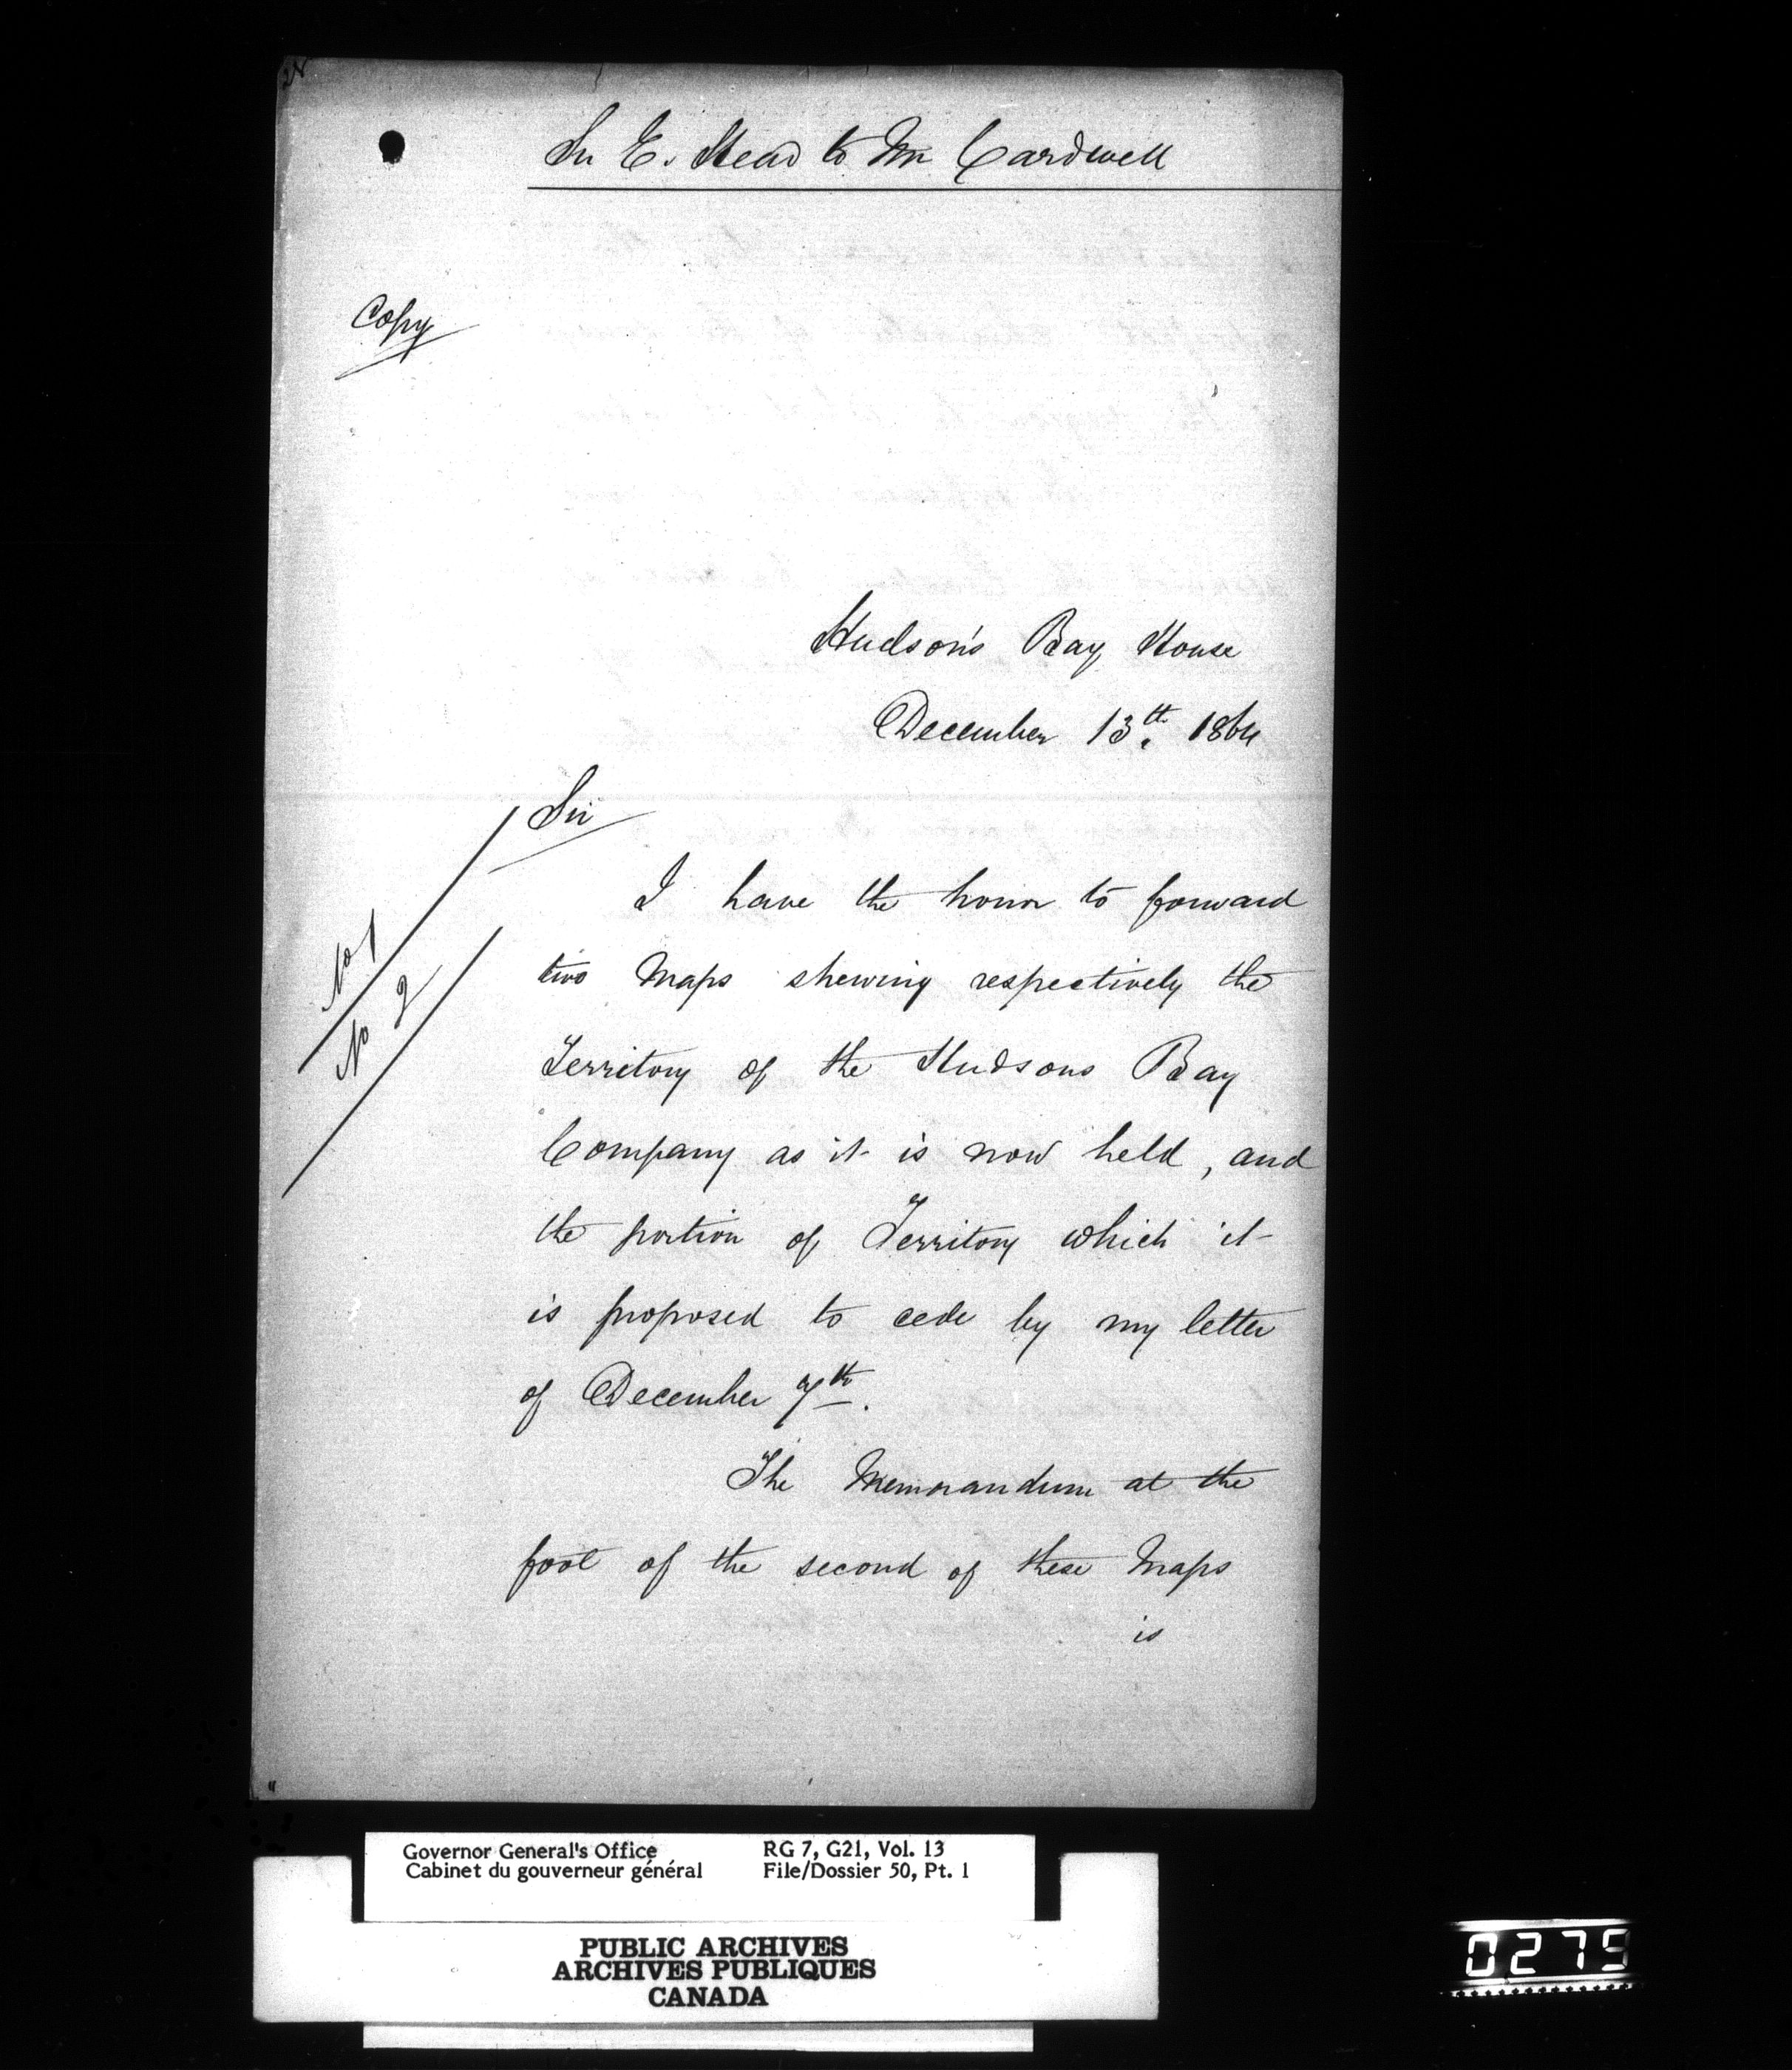 Sir E. Head to Mr Cardwell
Copy
Hudson's Bay House
December 13th. 1864
Sir
No 1
No 2
I have the honor to forward
two Maps shewing respectively the
Territory of the Hudsons Bay
Company as it is now held, and
the portion of Territory which it
is proposed to cede by my letter
of December 7th.
The Memorandum at the
foot of the second of these Maps
is
Governor General's Office
Cabinet du gouverneur général
RG 7, G21, Vol. 13
File/Dossier 50, Pt. 1
PUBLIC ARCHIVES
ARCHIVES PUBLIQUES
CANADA
0275